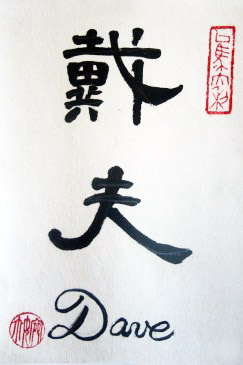 戴
夫
Dave